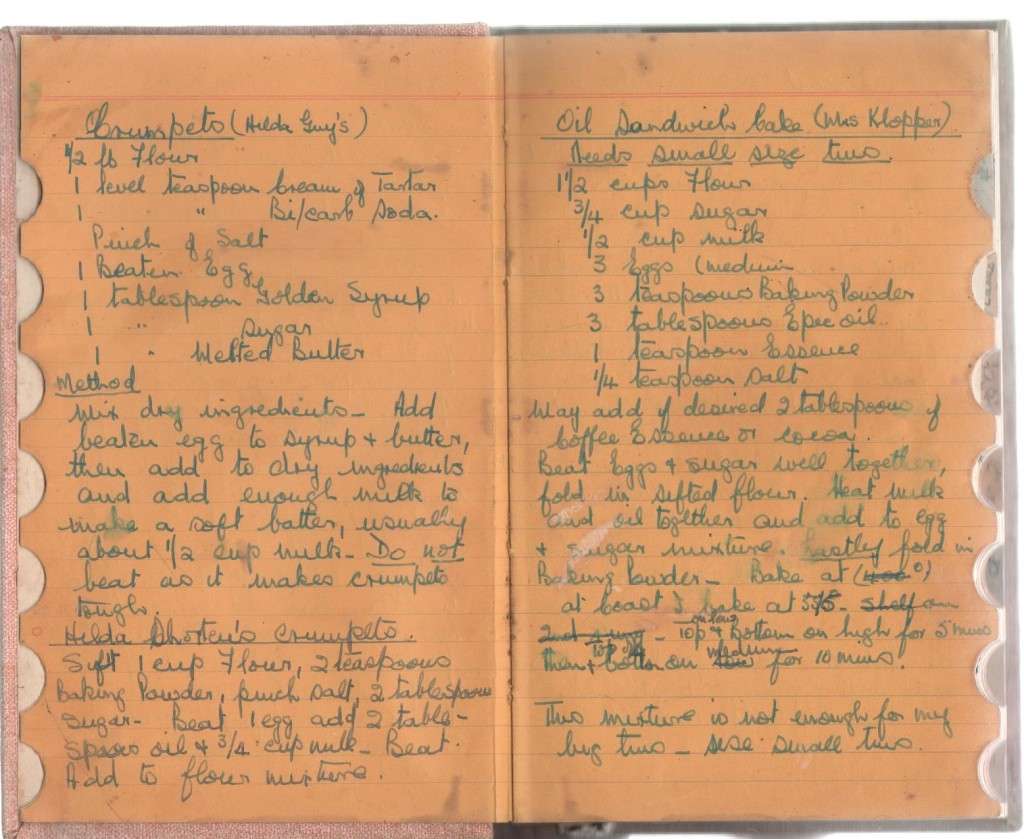 Crumpets (Hilda Guy's)
1/2 lb Flour
1 level teaspoon Cream of Tartar
1 " Bi/carb Soda.
Pinch of Salt
1 Beaten Egg
1 tablespoon Golden Syrup
1 " sugar
1 " Melted Butter
Method
Mix dry ingredients - Add
beaten egg to syrup + butter,
then add to dry ingredients
and add enough milk to
make a soft batter, usually
about 1/2 cup milk - Do not
beat as it makes crumpets
tough.
Hilda Shorten's Crumpets.
Sift 1 cup Flour, 2 teaspoons
Baking Powder, pinch salt, 2 tablespoons
Sugar - Beat 1 egg add 2 table-
spoons oil + 3/4 cup milk - Beat.
Add to flour mixture.
Oil Sandwich Cake (Mrs Klopper).
Needs small size tins.
1 1/2 cups Flour
3/4 cup sugar
1/2 cup milk
3 Eggs (medium
3 teaspoons Baking Powder
3 tablespoons Epec oil.
1 teaspoon Essence
1/4 teaspoon Salt
May add if desired 2 tablespoons of
Coffee Essence or cocoa.
Beat Eggs + sugar well together,
fold in sifted flour. Heat milk
and oil together and add to egg
+ sugar mixture. Lastly fold in
Baking Powder - Bake at (400°)
at coast I bake at 375 - Shelf on
2nd rung - top on low + bottom on high for 5 mins
then top + bottom on medium for 10 mins.
This mixture is not enough for my
big tins - use small tins.